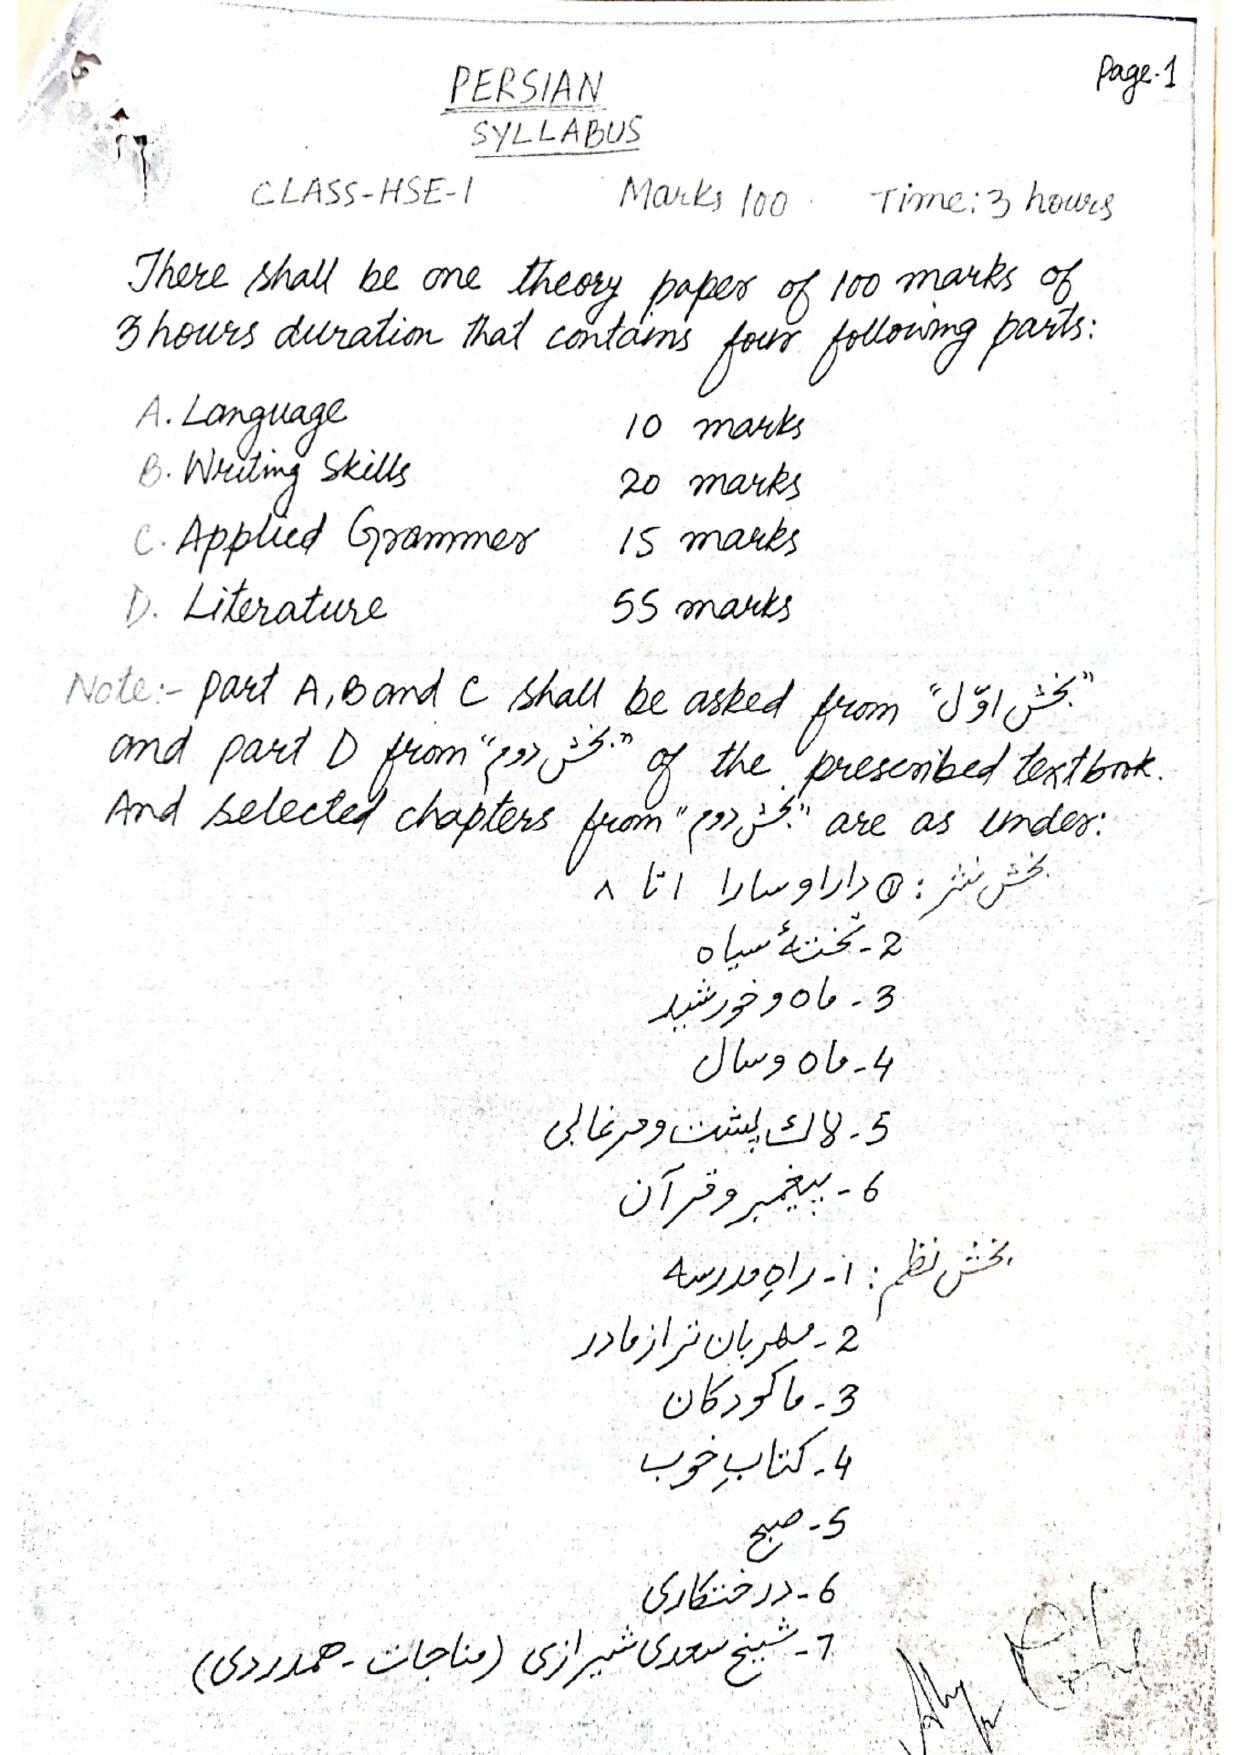 Page-1
PERSIAN
SYLLABUS
CLASS-HSE-I Marks 100 Time: 3 hours
There shall be one theory paper of 100 marks of
3 hours duration that contains four following parts:
A. Language 10 marks
B. Writing Skills 20 marks
C. Applied Grammer 15 marks
D. Literature 55 marks
Note:- part A, B and C shall be asked from "بخش اوّل"
and part D from "بخش دوم" of the prescribed textbook.
And selected chapters from "بخش دوم" are as under:
بخش نثر : ① دارا و سارا ۱ تا ۸
2- تختۂ سیاہ
3- ماہ و خورشید
4- ماہ و سال
5- لاک پشت و مرغابی
6- پیغمبر و قرآن
بخش نظم : ۱- راہِ مدرسہ
2- مھربان تر از مادر
3- ما کودکان
4- کتابِ خوب
5- صبح
6- درختکاری
7- شیخ سعدی شیرازی (مناجات - ھمدردی)